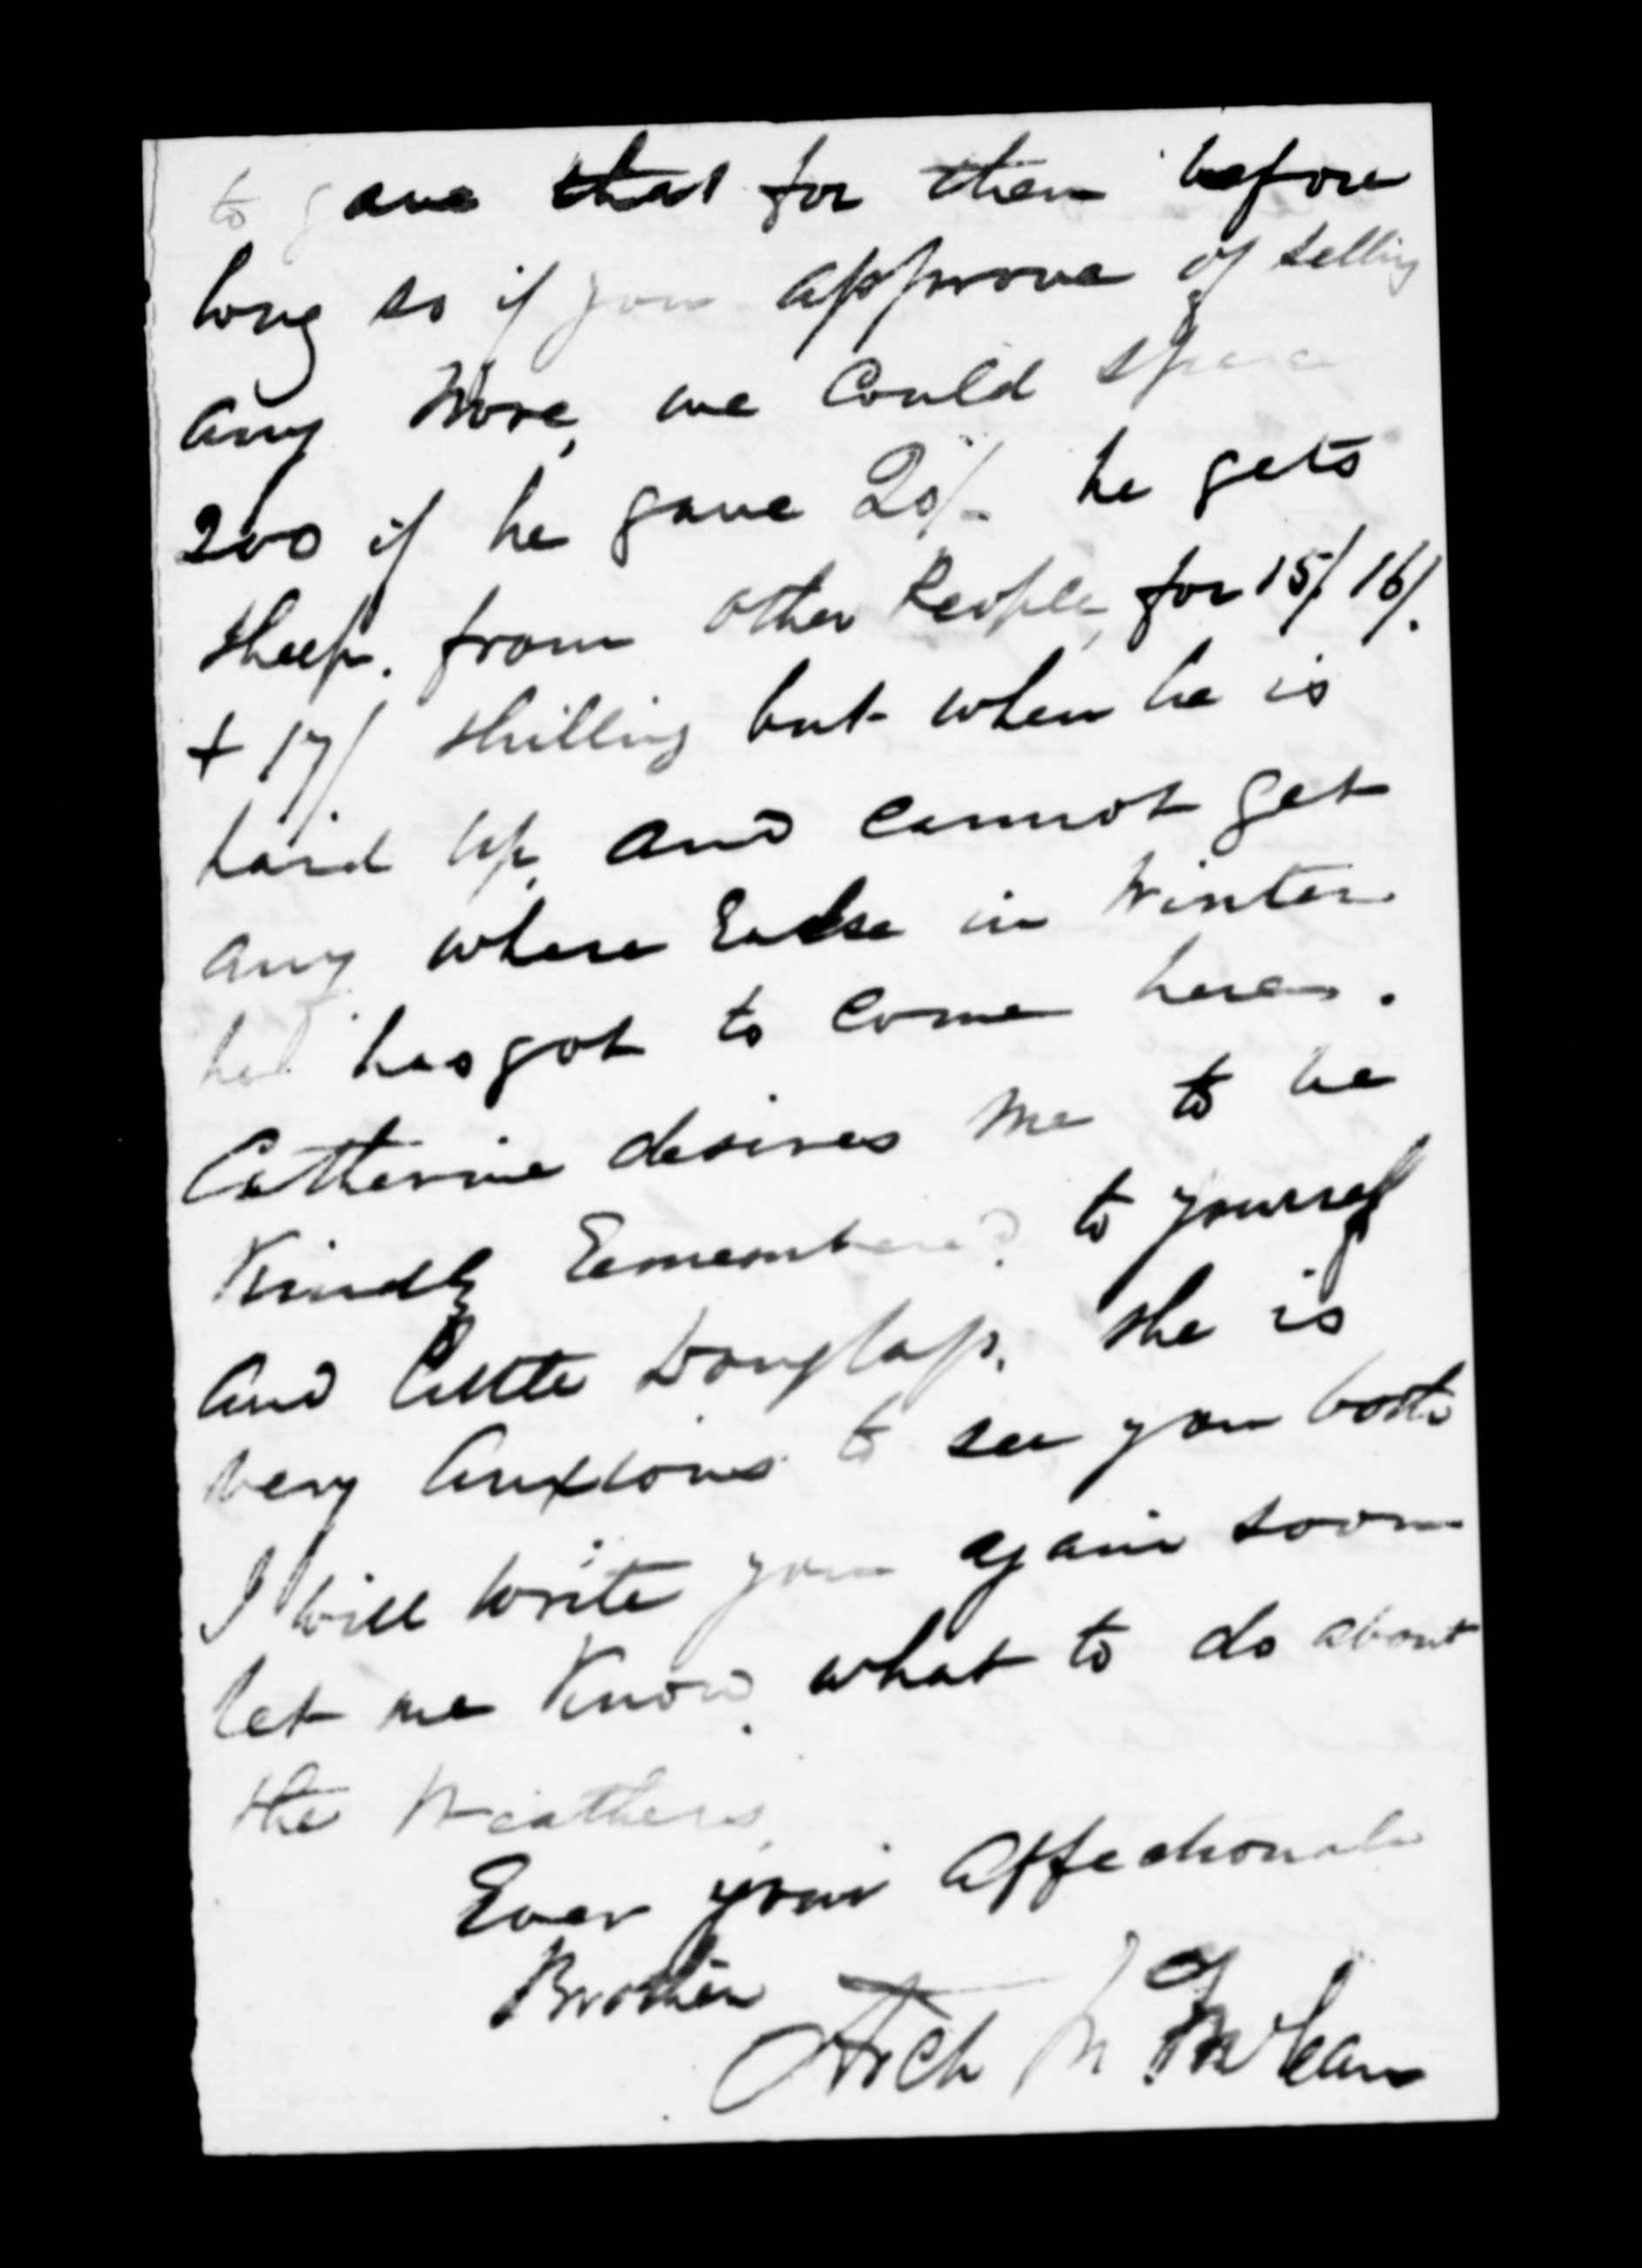 to gave that for them before
long so if you approve of selling
any More, we Could spare
200 if he gave 20/- he gets
sheep. from other People, for 15/ 16/.
+ 17/ shilling but when he is
hard up, and cannot get
any where Ealse in Winter
he has got to come here.
Catherine desires me to be
Kindly Rememberd to yourself
and little Douglass. she is
very Anxious to see you both
I will write you again soon
let me Know, what to do about
the Weathers,
Ever your Affectionate
Brother
Arch McLean